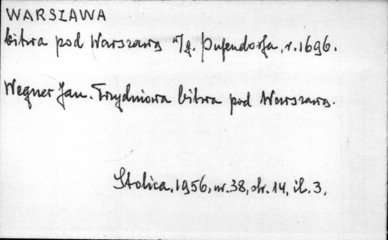 WARSZAWA
bitwa pod Warszawą wg. Pufendorfa, r. 1696.
Wegner Jan. Trzydniowa bitwa pod Warszawą.
Stolica, 1956, nr. 38, str. 14, il. 3.